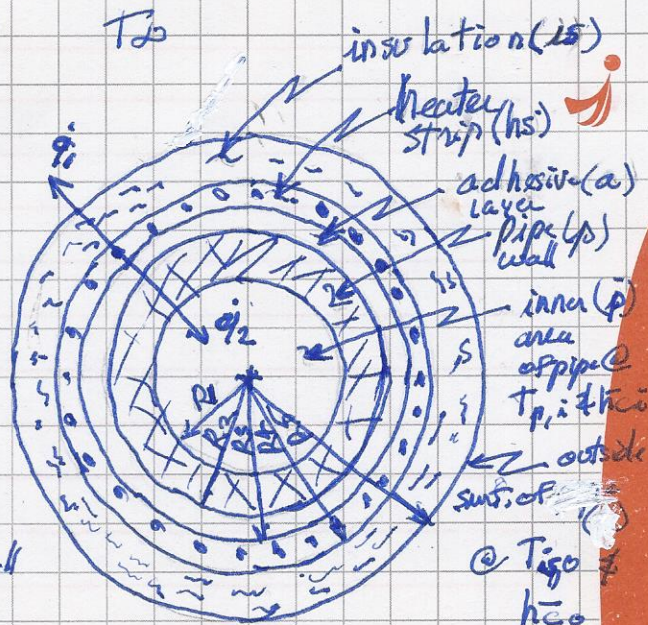 T∞
insulation (is)
heater
strip (hs)
adhesive (a)
layer
pipe (p)
wall
q̇₁
q̇₂
inner (p)
area
of pipe @
Tp,i & h̄ci
R1
R2
R3
R4
outside
surf. of
@ Tiso &
h̄co